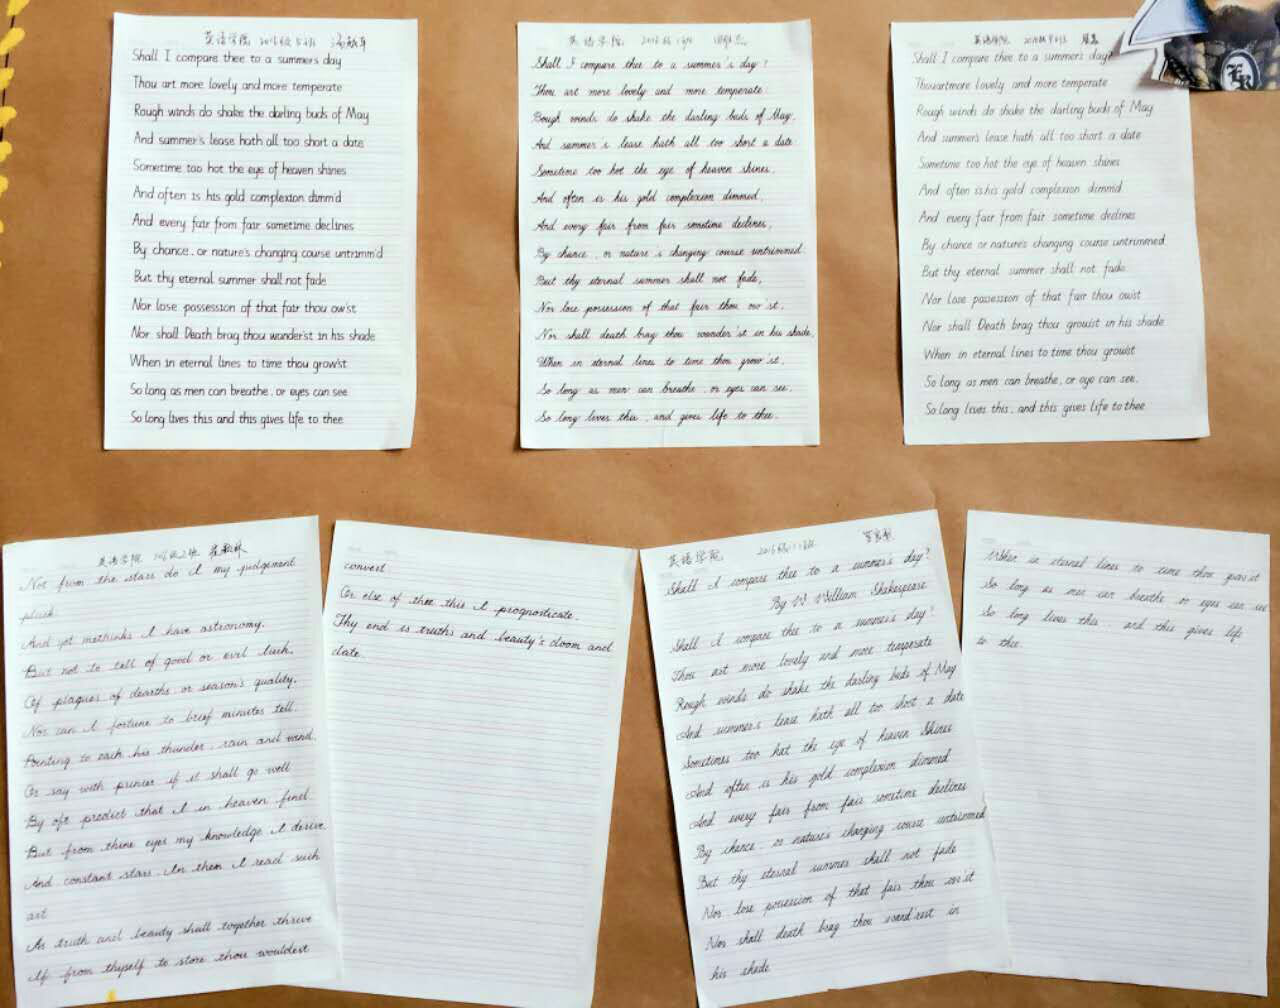 英语学院 2016级5班
Shall I compare thee to a summer's day
Thou art more lovely and more temperate
Rough winds do shake the darling buds of May
And summer's lease hath all too short a date
Sometime too hot the eye of heaven shines
And often is his gold complexion dimm'd
And every fair from fair sometime declines
By chance, or nature's changing course untrimm'd
But thy eternal summer shall not fade
Nor lose possession of that fair thou ow'st
Nor shall Death brag thou wander'st in his shade
When in eternal lines to time thou grow'st
So long as men can breathe, or eyes can see
So long lives this and this gives life to thee
英语学院 2016级
Shall I compare thee to a summer's day?
Thou art more lovely and more temperate:
Rough winds do shake the darling buds of May,
And summer's lease hath all too short a date:
Sometime too hot the eye of heaven shines,
And often is his gold complexion dimmed,
And every fair from fair sometime declines,
By chance, or nature's changing course untrimmed.
But thy eternal summer shall not fade,
Nor lose possession of that fair thou ow'st,
Nor shall death brag thou wander'st in his shade,
When in eternal lines to time thou grow'st,
So long as men can breathe, or eyes can see,
So long lives this, and gives life to thee.
英语学院
Shall I compare thee to a summer's day?
Thou art more lovely and more temperate
Rough winds do shake the darling buds of May
And summer's lease hath all too short a date
Sometime too hot the eye of heaven shines
And often is his gold complexion dimm'd
And every fair from fair sometime declines
By chance or nature's changing course untrimmed
But thy eternal summer shall not fade
Nor lose possession of that fair thou ow'st
Nor shall Death brag thou grow'st in his shade
When in eternal lines to time thou grow'st
So long as men can breathe, or eye can see,
So long lives this, and this gives life to thee
英语学院
Not from the stars do I my judgement
pluck
And yet methinks I have astronomy,
But not to tell of good or evil luck,
Of plagues of dearths, or season's quality,
Nor can I fortune to brief minutes tell,
Pointing to each his thunder, rain and wind,
Or say with princes if it shall go well
By oft predict that I in heaven find
But from thine eyes my knowledge I derive,
And constant stars, In them I read such
art
As truth and beauty shall together thrive
If from thyself to store thou wouldest
convert
Or else of thee this I prognosticate,
Thy end is truth's and beauty's doom and
date
英语学院 2016级
Shall I compare thee to a summer's day?
By W William Shakespeare
Shall I compare thee to a summer's day?
Thou art more lovely and more temperate
Rough winds do shake the darling buds of May
And summer's lease hath all too short a date
Sometimes too hot the eye of heaven Shines
And often is his gold complexion dimmed
And every fair from fair sometime declines
By chance, or nature's changing course untrimmed
But thy eternal summer shall not fade
Nor lose possession of that fair thou ow'st
Nor shall death brag thou wand'rest in
his shade
When in eternal lines to time thou grow'st
So long as men can breathe or eyes can see
So long lives this, and this gives life
to thee.